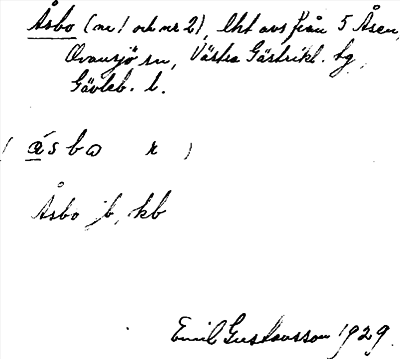 Åsbo (nr 1 och nr 2), lht avs från 5 Åsen,
Ovansjö sn, Västra Gästrikl. tg,
Gävleb. l.
( åsbo r )
Åsbo jb, kb
Emil Gustavsson 1929.